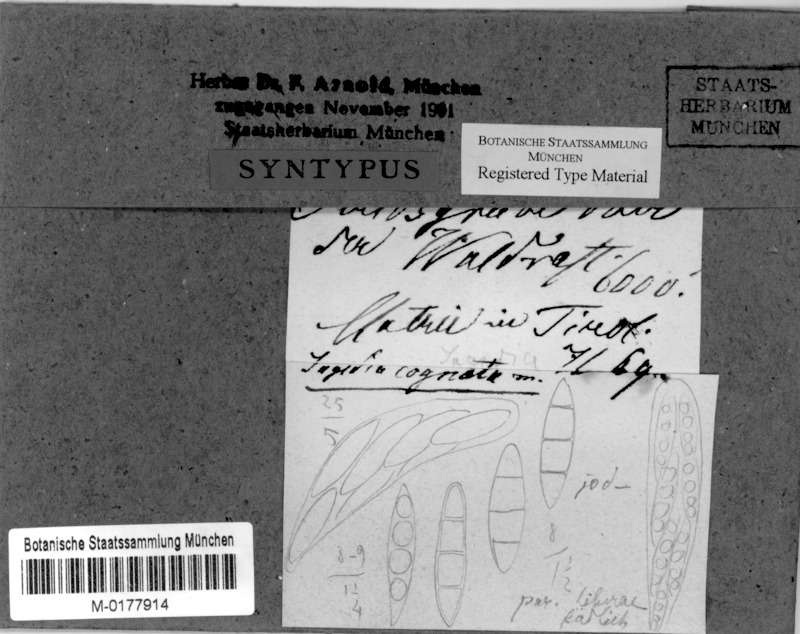 Herbar Dr. F. Arnold, München
zugegangen November 1901
Staatsherbarium München
STAATS-
HERBARIUM
MÜNCHEN
SYNTYPUS
BOTANISCHE STAATSSAMMLUNG
MÜNCHEN
Registered Type Material
der Waldrast
6000'.
Matrei in Tirol.
Sagedia
Sagedia cognata m.
25
5
jod–
8–9
12
4
8
1
12
par. liberae
Botanische Staatssammlung München
M-0177914